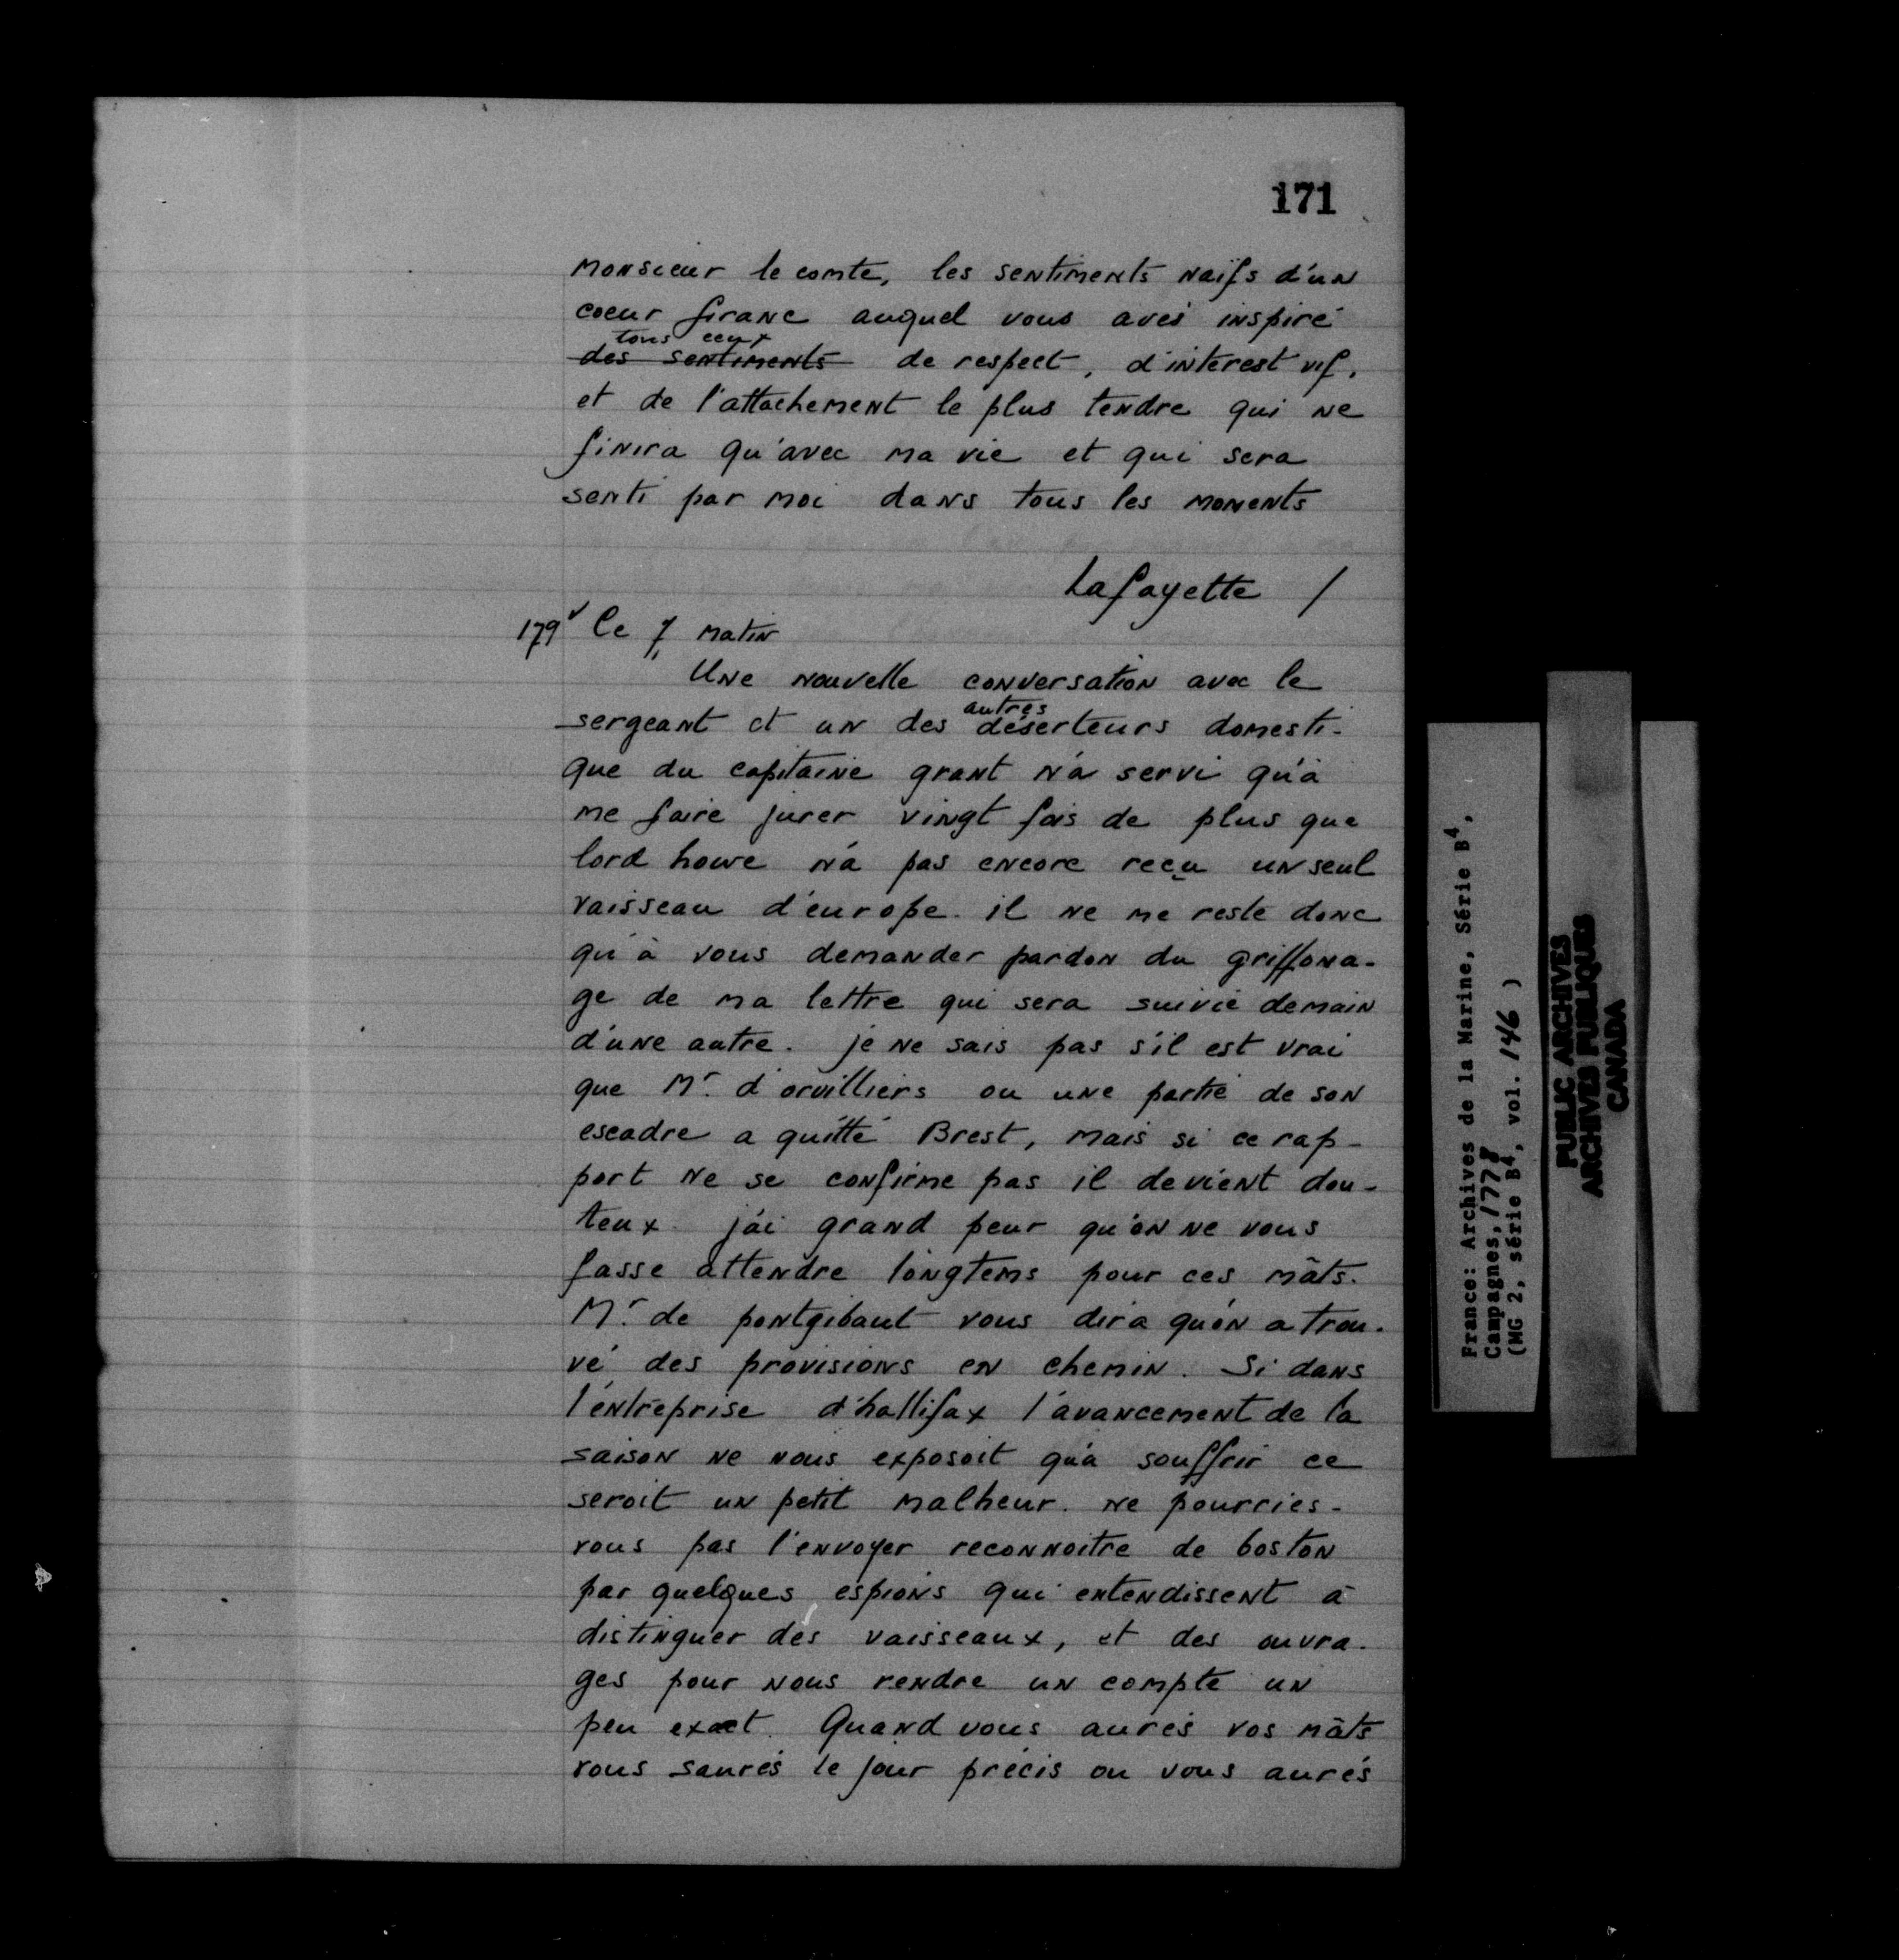 171
monsieur le comte, les sentiments naïfs d'un
coeur franc auquel vous avés inspiré
tous ceux
des sentiments de respect, d'interest vif,
et de l'attachement le plus tendre qui ne
finira qu'avec ma vie et qui sera
senti par moi dans tous les moments
Lafayette /
179v Ce 7 matin
Une nouvelle conversation avec le
autres
sergeant et un des déserteurs domesti-
que du capitaine grant n'a servi qu'à
me faire jurer vingt fois de plus que
lord howe n'a pas encore reçu un seul
vaisseau d'europe. il ne me reste donc
qu'à vous demander pardon du griffona-
ge de ma lettre qui sera suivie demain
d'une autre. je ne sais pas s'il est vrai
que Mr. d'orvilliers ou une partie de son
escadre a quitté Brest, mais si ce rap-
port ne se confirme pas il devient dou-
teux. j'ai grand peur qu'on ne vous
fasse attendre longtems pour ces mâts.
Mr. de pontgibaut vous dira qu'on a trou-
vé des provisions en chemin. Si dans
l'entreprise d'hallifax l'avancement de la
saison ne nous exposoit qu'a souffrir ce
seroit un petit malheur. ne pourries-
vous pas l'envoyer reconnoitre de boston
par quelques espions qui entendissent a
distinguer des vaisseaux, et des ouvra-
ges pour nous rendre un compte un
peu exact. Quand vous aurés vos mâts
vous saurés le jour précis ou vous aurés
France: Archives de la Marine, Série B4,
Campagnes, 1778
(MG 2, série B4, vol. 146 )
PUBLIC ARCHIVES
ARCHIVES PUBLIQUES
CANADA